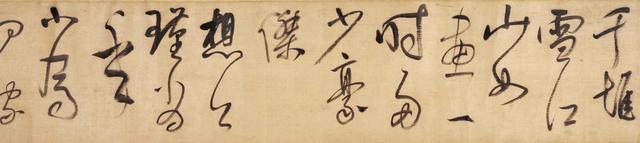 千堆
雪江
山如
畫一
時多
少豪
傑
想公
瑾當
年
小喬